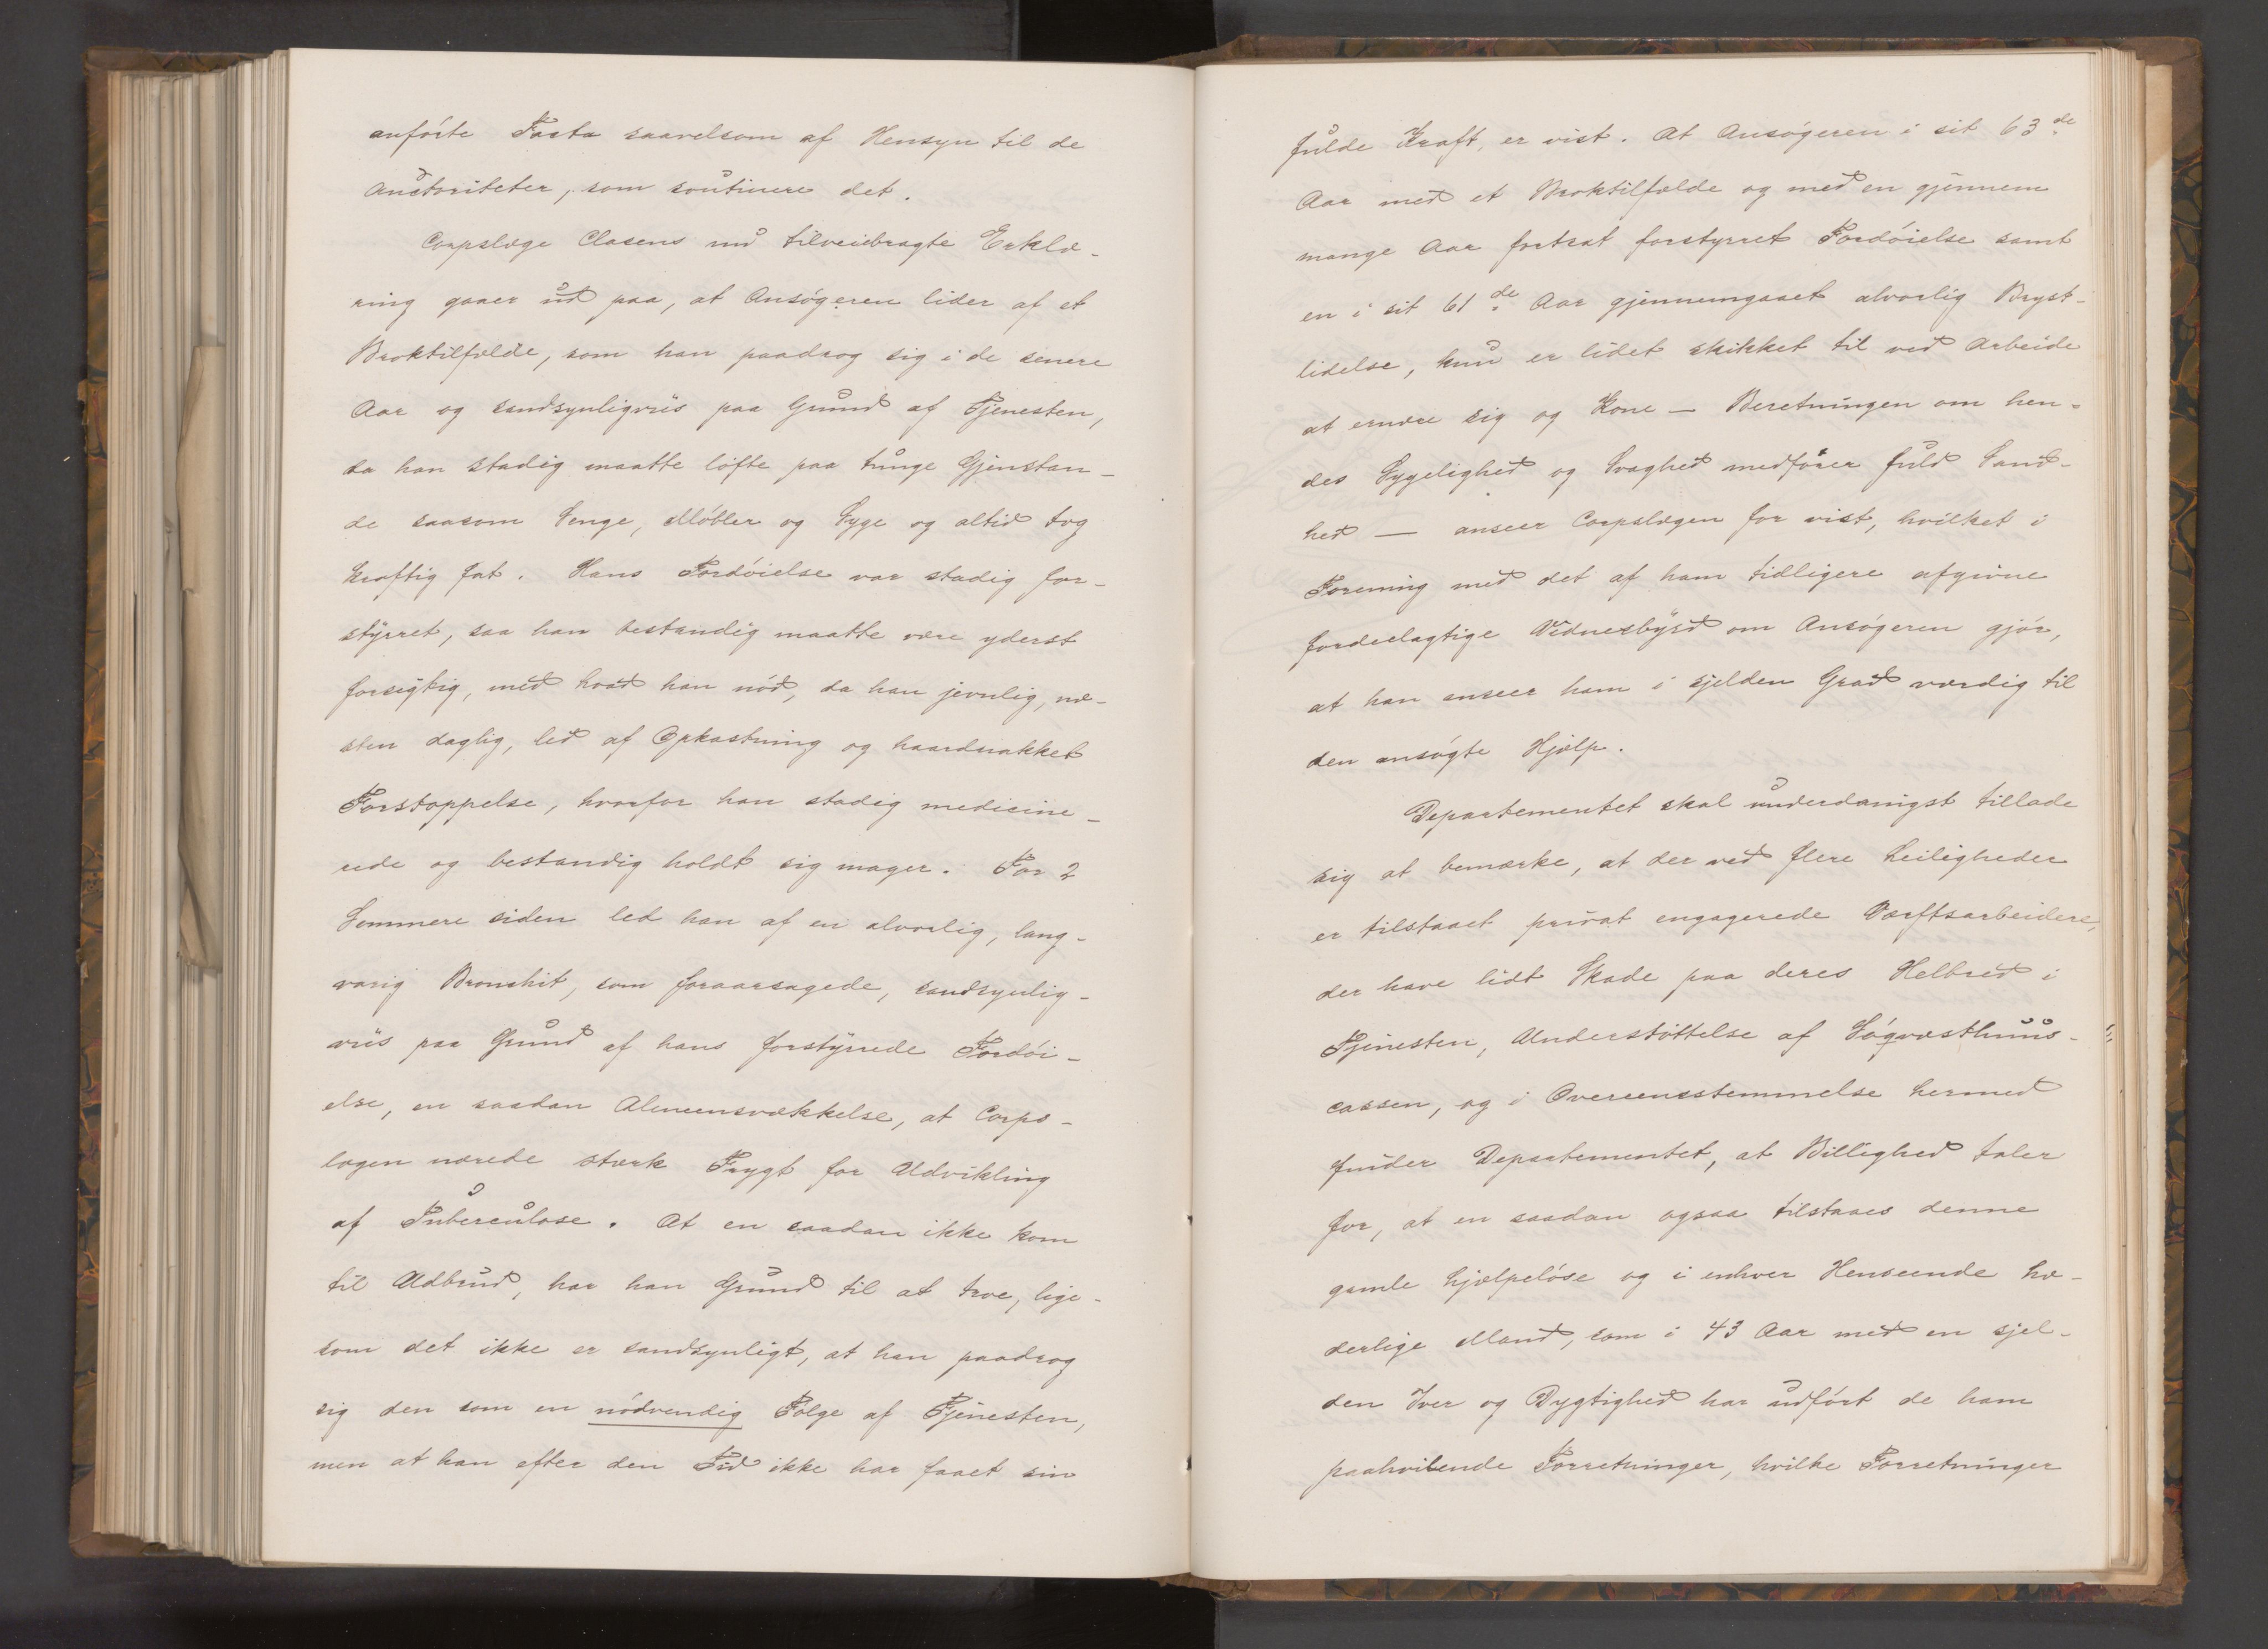 anførte Facta saavelsom af Hensyn til de
Auctoriteter, som soutinere det.
Corpslæge Clasens nu tilveiebragte Erklæ-
ring gaaer ud paa, at Ansøgeren lider af et
Broktilfælde, som han paadrog sig i de senere
Aar og sandsynligviis paa Grund af Tjenesten,
da han stadig maatte løfte paa tunge Gjenstan-
de saasom Senge, Møbler og Syge og altid tog
kraftig fat. Hans Fordøielse var stadig for-
styrret, saa han bestandig maatte være yderst
forsigtig, med hvad han nød, da han jevnlig, næ-
sten daglig, led af Opkastning og haardnakket
Forstoppelse, hvorfor han stadig medicine-
rede og bestandig holdt sig mager. For 2
Sommere siden led han af en alvorlig, lang-
varig Bronchit, som foraarsagede, sandsynlig-
viis paa Grund af hans forstyrrede Fordøi-
else, en saadan Almeensvækkelse, at Corps-
lægen nærede stærk Frygt for Udvikling
af Tuberculose. At en saadan ikke kom
til Udbrud, har han Grund til at troe, lige-
som det ikke er sandsynligt, at han paadrog
sig den som en nødvendig Følge af Tjenesten,
men at han efter den Tid ikke har faaet sin
fulde Kraft, er vist. At Ansøgeren i sit 63de
Aar med et Broktilfælde og med en gjennem
mange Aar fortsat forstyrret Fordøielse samt
en i sit 61de Aar gjennemgaaet alvorlig Bryst-
lidelse, kun er lidet skikket til ved Arbeide
at ernære sig og Kone - Beretningen om hen-
des Sygelighed og Svaghed medfører fuld Sand-
hed - anseer Corpslægen for vist, hvilket i
Forening med det af ham tidligere afgivne
fordeelagtige Vidnesbyrd om Ansøgeren gjør,
at han anseer ham i sjelden Grad værdig til
den ansøgte Hjælp.
Departementet skal underdanigst tillade
sig at bemærke, at der ved flere Leiligheder
er tilstaaet privat engagerede Værftsarbeidere,
der have lidt Skade paa deres Helbred i
Tjenesten, Understøttelse af Søqvæsthuus-
cassen, og i Overeensstemmelse hermed
finder Departementet, at Billighed taler
for, at en saadan ogsaa tilstaaes denne
gamle hjælpeløse og i enhver Henseende hæ-
derlige Mand, som i 43 Aar med en sjel-
den Iver og Dygtighed har udført de ham
paahvilende Forretninger, hvilke Forretninger